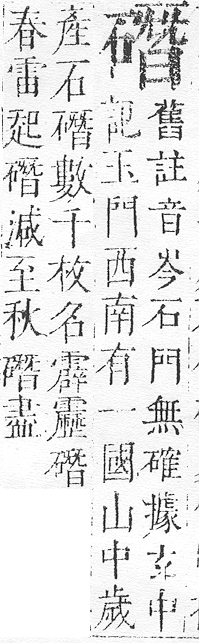 𥖎
舊註音岑石門無確據玄中
記玉門西南有一國山中歲
產石𥖎數千枚名霹靂𥖎
春雷起𥖎減至秋𥖎盡